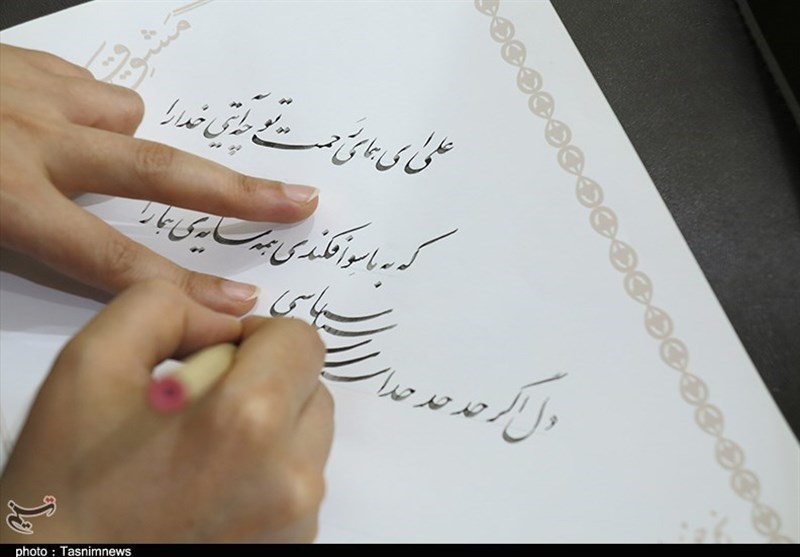 مشق
علی ای همای رحمت تو چه آیتی خدا را
که به ماسوا فکندی همه سایه‌ی هما را
دل اگر
تسنیم
photo : Tasnimnews